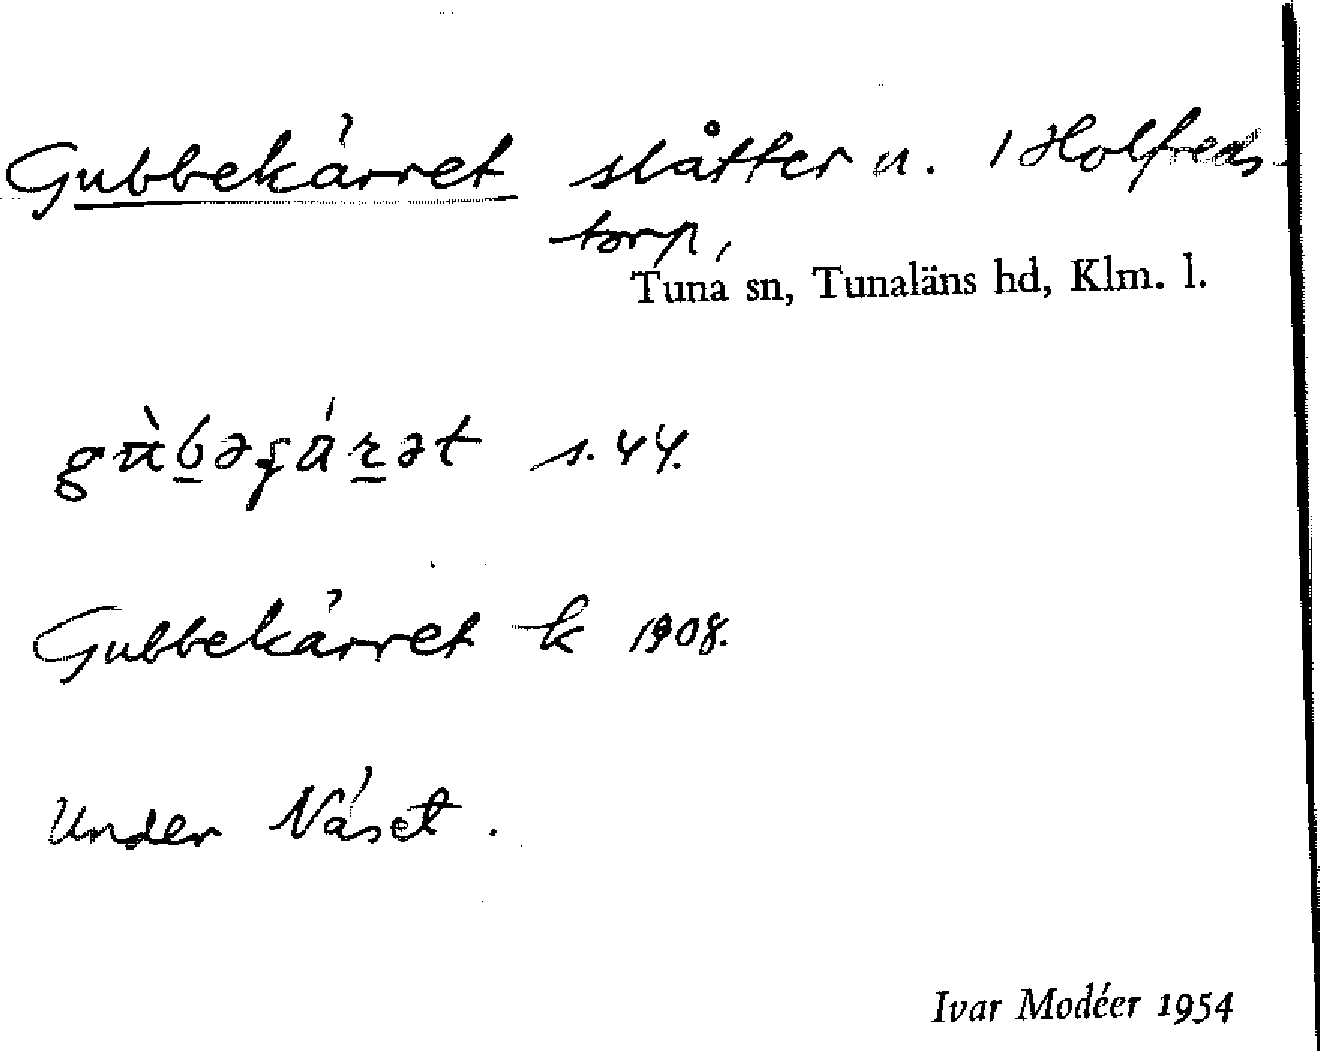 Gubbekärret slåtter n. 1 Holfreds-
torp,
Tuna sn, Tunaläns hd, Klm. l.
s. 44.
Gubbekärret k 1908.
Under Näset.
Ivar Modéer 1954